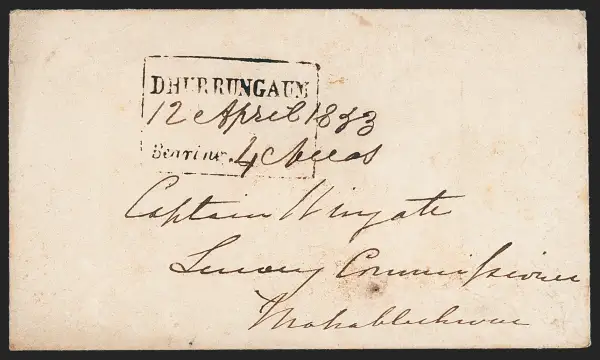 DHURRUNGAUM
12 April 1853
Bearing 4 Annas
Captain Wingate
Survey Commissioner
Mahableshwur